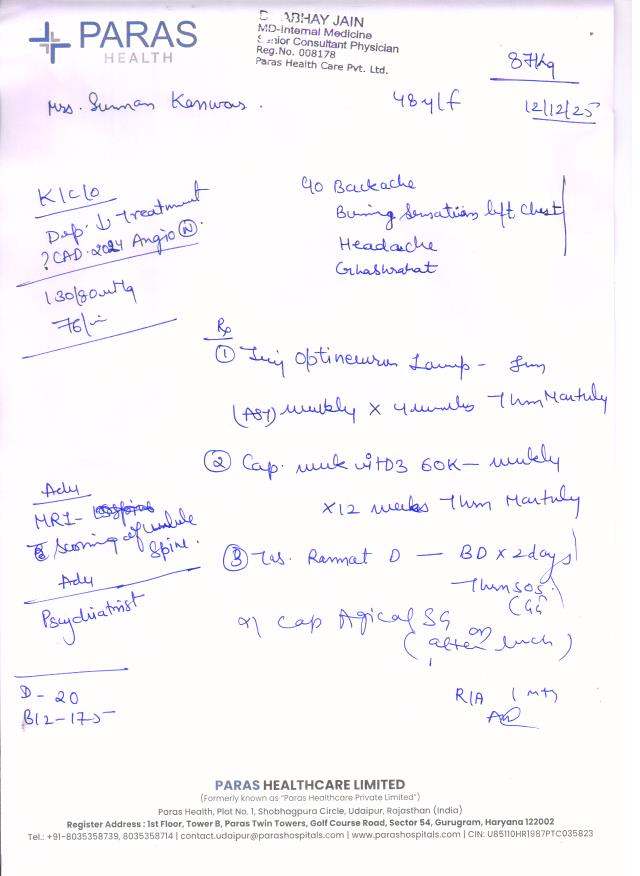 PARAS
HEALTH
D ABHAY JAIN
MD-Internal Medicine
Senior Consultant Physician
Reg.No. 008178
Paras Health Care Pvt. Ltd.
87Kg
Mrs. Suman Kanwar.
48y/f
12/12/25
K/C/O
Dep. ↓ Treatment
? CAD. 2024 Angio (N).
130/80mmHg
76/m
C/o Backache
Burning Sensations left Chest
Headache
Ghabrahat
Rx
① Inj Optineuron 1amp - 
(AST) weekly x 4 weeks Then Monthly
② Cap. vit D3 60K - weekly
x 12 weeks Then Monthly
③ D - BD x 2 days
Then SOS.
Cap SG OD
(after lunch)
Adv
MRI-
Screening of whole
Spine.
Adv
Psychiatrist
D - 20
B12 - 175
R/A 1 mth
PARAS HEALTHCARE LIMITED
(Formerly known as "Paras Healthcare Private Limited")
Paras Health, Plot No. 1, Shobhagpura Circle, Udaipur, Rajasthan (India)
Register Address : 1st Floor, Tower B, Paras Twin Towers, Golf Course Road, Sector 54, Gurugram, Haryana 122002
Tel.: +91-8035358739, 8035358714 | contact.udaipur@parashospitals.com | www.parashospitals.com | CIN: U85110HR1987PTC035823